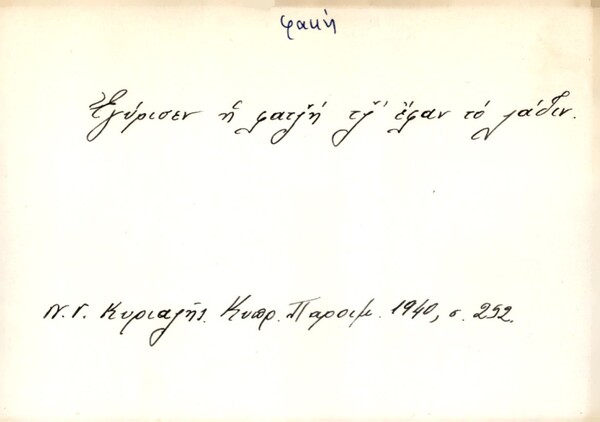 φακή
Ἐγύρισεν ἡ φατζ̆ή τζ̆' ἔφαν τό λάδιν.
Ν. Γ. Κυριαζῆς. Κυπρ. Παροιμ. 1940, σ. 252.